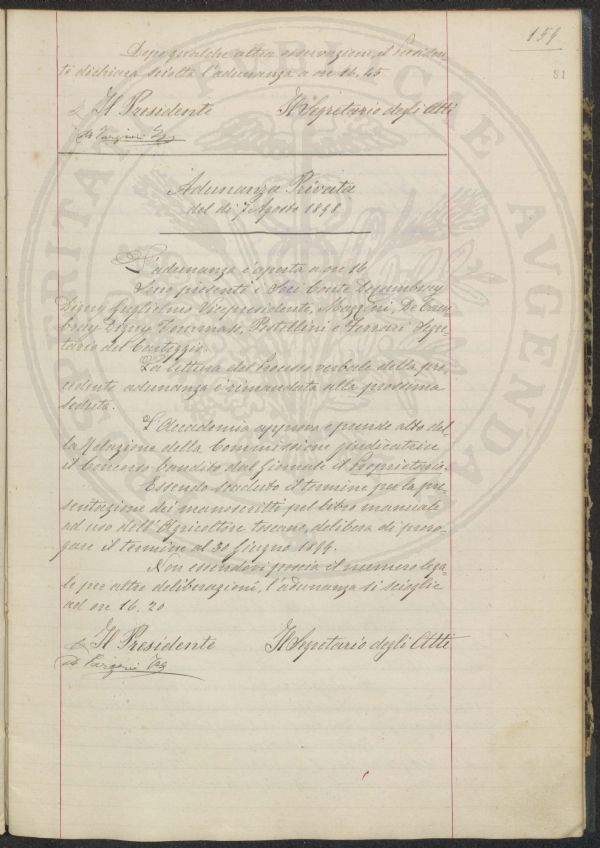 159
81
Dopo qualche altra osservazione, il Presiden-
te dichiara sciolta l'adunanza a ore 16.45
Il Presidente Il Segretario degli Atti
Adunanza Privata
del dì 7 Agosto 1898
L'adunanza è aperta a ore 16
Sono presenti i Soci Conte Decambray
Digny Guglielmo Vicepresidente, Mazzini, De Cam-
bray Digny Tommaso, Pestellini e Ferrari Segre-
tario del Carteggio.
La lettura del Processo verbale della pre-
cedente adunanza è rimandata alla prossima
seduta.
L'Accademia approva e prende atto del-
la Relazione della Commissione giudicatrice
il Concorso bandito dal giornale il Proprietario.
Essendo scaduto il termine per la pre-
sentazione dei manoscritti pel libro manuale
ad uso dell'Agricoltore toscano, delibera di proro-
gare il termine al 30 Giugno 1899.
Non essendovi poscia il numero lega-
le per altre deliberazioni, l'adunanza si scioglie
ad ore 16.20
Il Presidente Il Segretario degli Atti
PUBLICAE
AUGENDAE